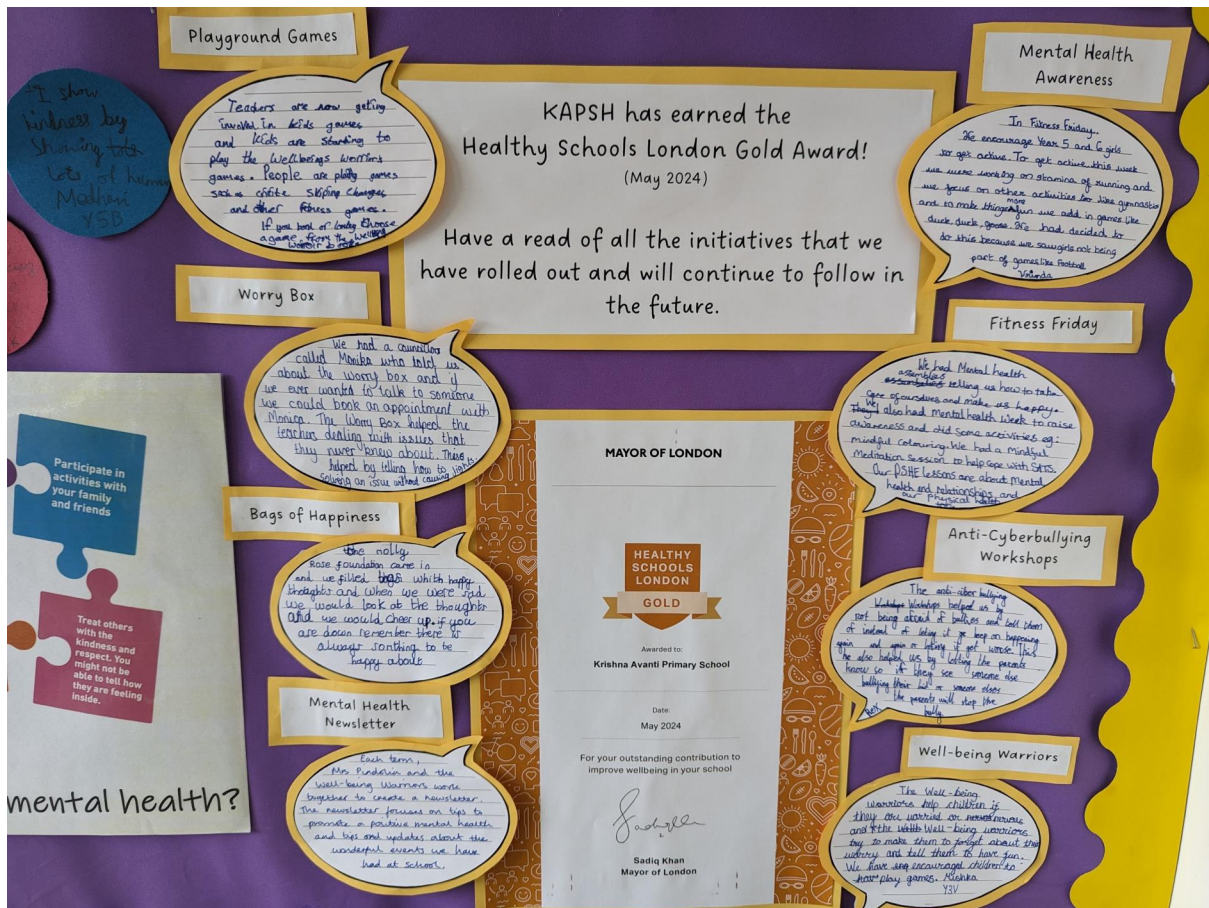 Playground Games
Teachers are now geting
involved in kids games
and kids are starting to
play the Wellbeings worriors
games. People are playing games
such as Skiping Changes
and other fitness games.
If you bord or lonley Choose
a game from the Wellbeing
Worrior
I show
kindness by
Showing
Lots of human
Y5B
Worry Box
We had a councillor
called Monika who told us
about the worry box and if
we ever wanted to talk to someone
we could book an appointment with
Monica. The Worry Box helped the
teachers dealing with issues that
they never knew about. These
helped by telling how to
solving an issue without causing fights.
Bags of Happiness
the nolly
Rose foundation came in
and we filled bags which happy
thoughts and when we were sad
we would look at the thoughts
and we would cheer up. if you
are down remember there is
always somthing to be
happy about
Mental Health
Newsletter
Each term,
Mrs Pindoria and the
Well-being Warriors work
together to create a newsletter.
The newsletter focuses on tips to
promote a positive mental health
and tips and updates about the
wonderful events we have
had at school.
Participate in
activities with
your family
and friends
Treat others
with the
kindness and
respect. You
might not be
able to tell how
they are feeling
inside.
mental health?
KAPSH has earned the
Healthy Schools London Gold Award!
(May 2024)
Have a read of all the initiatives that we
have rolled out and will continue to follow in
the future.
MAYOR OF LONDON
HEALTHY
SCHOOLS
LONDON
GOLD
Awarded to:
Krishna Avanti Primary School
Date:
May 2024
For your outstanding contribution to
improve wellbeing in your school
Sadiq Khan
Mayor of London
Mental Health
Awareness
In Fitness Friday..
We encourage Year 5 and 6 girls
to get active. To get active this week
we were working on stamina of running and
we focus on other activities like gymnastics
and to make things more fun we add in games like
duck, duck, goose. We had decided to
do this because we saw girls not being
part of games like Football
Vrinda
Fitness Friday
We had Mental health
assemblies telling us how to take
care of ourselves and make us happy.
We also had Mental health week to raise
awareness and did some activities eg:
mindful colouring. We had a Mindful
Meditation Session to help cope with SATS.
Our PSHE lessons are about Mental
health and relationships and
our physical health
Anti-Cyberbullying
Workshops
The anti-ciber bullying
Workshops helped us by
not being afraid of bullies and tell them
of instead of leting it go keep on happening
again and again or leting it get worse. This
he also helped us by leting the parents
know so if they see someone else
bullying their kid or someone elses
the parents will stop the
bully.
Well-being Warriors
The Well-being
warriors help children if
they are worried or nervous
and the Well-being warriors
try to make them to forget about the
worry and tell them to have fun.
We have encouraged children to
play games. Mishka
Y3V